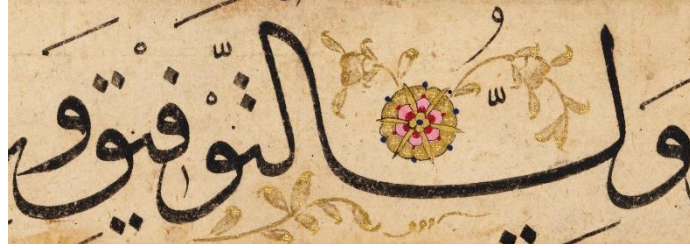 ولي التوفيق و